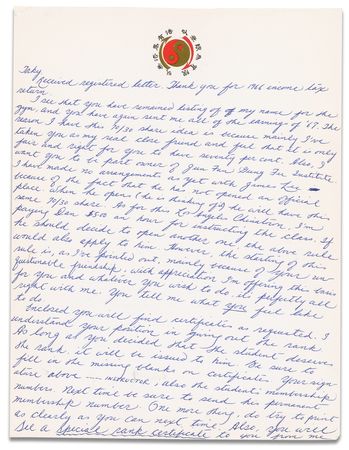 Taky,
Received registered letter. Thank you for 1966 income tax
return.
I see that you have remained listing of my name for the
gym, and you have again sent me all of the earnings of '67. The
reason I have this 70/30 share idea is because mainly I've
taken you as my real close friend and feel that it is only
fair and right for you to have seventy per cent. Also, I
want you to be part owner of Jun Fan Gung Fu Institute.
I have made no arrangements as yet with James Lee
because of the fact that he has not opened an official
place. When he opens (he is thinking of it) he will have this
same 70/30 share. As for this Los Angeles Kwoon, I'm
paying Dan $5.00 an hour for instructing the class. If
he should decide to open another one, the above rule
would also apply to him. However, the starting of this
rule is, as I've pointed out, mainly because of your un-
questionable friendship; with appreciation I'm offering the
for you and whatever you wish to do is perfectly all
right with me. You tell me what you feel like
to do.
Enclosed you will find certificates as requested. I
understand your position in giving out the rank.
As long as you decided that the student deserves
the rank, it will be issued to him. Be sure to
fill in the missing blanks on certificate. Your sign-
ature above, also the student's membership
number. Next time be sure to send his permanent
membership number. One more thing, do try to print
as clearly as you can next time. Also, you will
see a special rank certificate to you from me